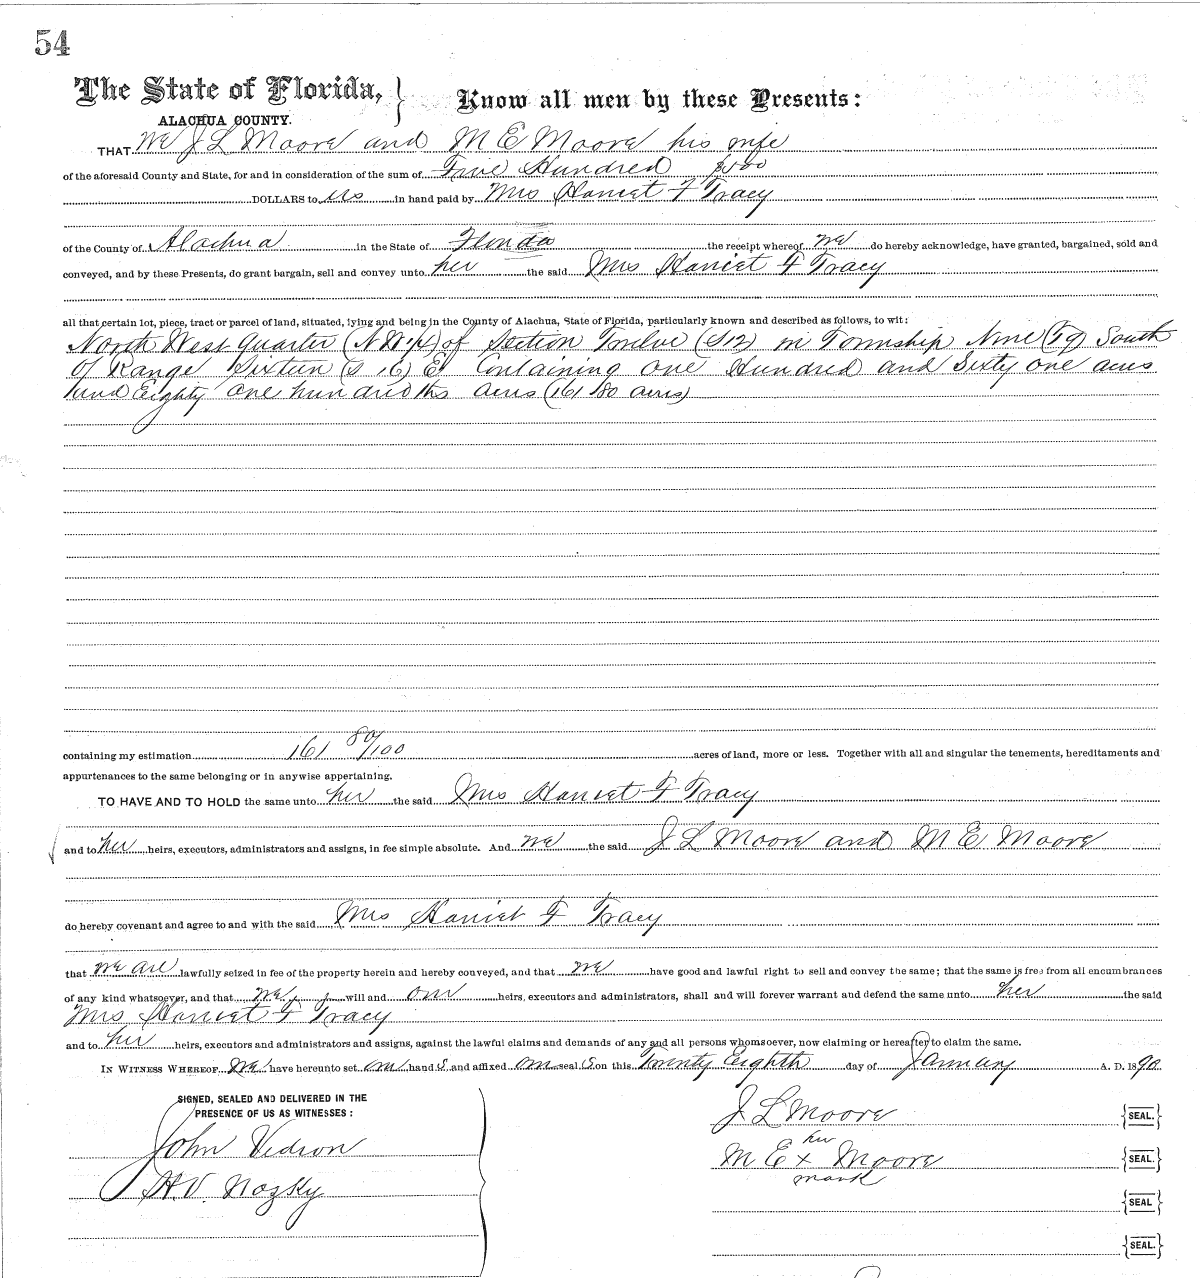 54
The State of Florida, } Know all men by these Presents:
ALACHUA COUNTY.
THAT We J L Moore and M E Moore his wife
of the aforesaid County and State, for and in consideration of the sum of Five Hundred $500
DOLLARS to us in hand paid by Mrs Harriet F Tracy
of the County of Alachua in the State of Florida the receipt whereof we do hereby acknowledge, have granted, bargained, sold and
conveyed, and by these Presents, do grant bargain, sell and convey unto her the said Mrs Harriet F Tracy
all that certain lot, piece, tract or parcel of land, situated, lying and being in the County of Alachua, State of Florida, particularly known and described as follows, to wit:
North West Quarter (N W ¼) of Section Twelve (S 12) in Township Nine (T 9) South
of Range Sixteen (S 16) E Containing one Hundred and Sixty one acres
and Eighty one hundredths acres (161 80 acres)
containing my estimation 161 80/100 acres of land, more or less. Together with all and singular the tenements, hereditaments and
appurtenances to the same belonging or in anywise appertaining.
TO HAVE AND TO HOLD the same unto her the said Mrs Harriet F Tracy
and to her heirs, executors, administrators and assigns, in fee simple absolute. And we the said J L Moore and M E Moore
do hereby covenant and agree to and with the said Mrs Harriet F Tracy
that we are lawfully seized in fee of the property herein and hereby conveyed, and that we have good and lawful right to sell and convey the same; that the same is free from all encumbrances
of any kind whatsoever, and that we will and our heirs, executors and administrators, shall and will forever warrant and defend the same unto her the said
Mrs Harriet F Tracy
and to her heirs, executors and administrators and assigns, against the lawful claims and demands of any and all persons whomsoever, now claiming or hereafter to claim the same.
IN WITNESS WHEREOF we have hereunto set our hand s and affixed our seal s on this Twenty Eighth day of January A. D. 1890
SIGNED, SEALED AND DELIVERED IN THE
PRESENCE OF US AS WITNESSES:
J L Moore {SEAL.}
John Vidson
her
M E x Moore {SEAL.}
mark
H. V. Nozky
{SEAL}
{SEAL.}